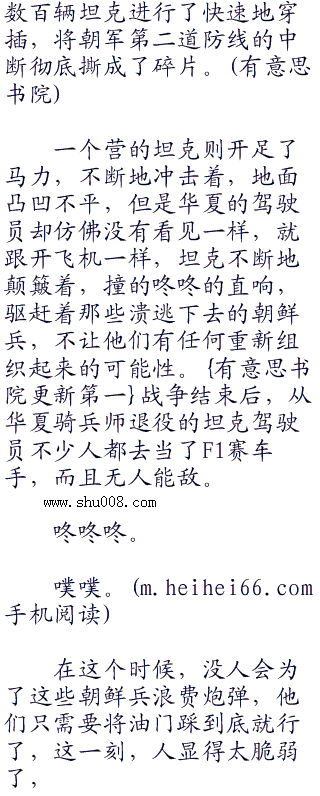 数百辆坦克进行了快速地穿
插，将朝军第二道防线的中
断彻底撕成了碎片。(有意思
书院)
一个营的坦克则开足了
马力，不断地冲击着，地面
凸凹不平，但是华夏的驾驶
员却仿佛没有看见一样，就
跟开飞机一样，坦克不断地
颠簸着，撞的咚咚的直响，
驱赶着那些溃逃下去的朝鲜
兵，不让他们有任何重新组
织起来的可能性。{有意思书
院更新第一}战争结束后，从
华夏骑兵师退役的坦克驾驶
员不少人都去当了F1赛车
手，而且无人能敌。
www.shu008.com
咚咚咚。
噗噗。(m.heihei66.com
手机阅读)
在这个时候，没人会为
了这些朝鲜兵浪费炮弹，他
们只需要将油门踩到底就行
了，这一刻，人显得太脆弱
了，